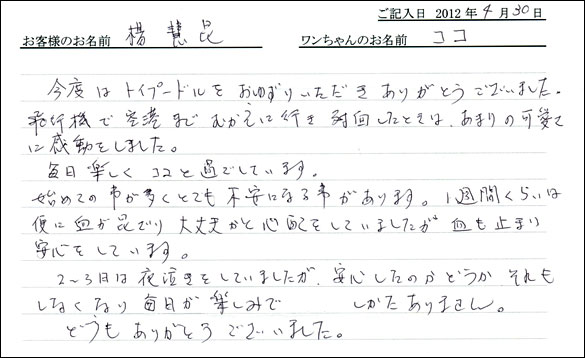 ご記入日 2012年4月30日
お客様のお名前 楊 慧昆 ワンちゃんのお名前 ココ
今度はトイプードルをおゆずりいただきありがとうございました。
飛行機で空港までむかえに行き対面したときは、あまりの可愛さ
に感動をしました。
毎日楽しくココと過でしています。
始めての事が多くとても不安になる事があります。1週間くらいは
便に血が混でり大丈夫かと心配をしていましたが血も止まり
安心をしています。
2〜3日は夜泣きをしていましたが、安心したのかどうかそれも
しなくなり毎日が楽しみで しかたありません。
どうもありがとうございました。